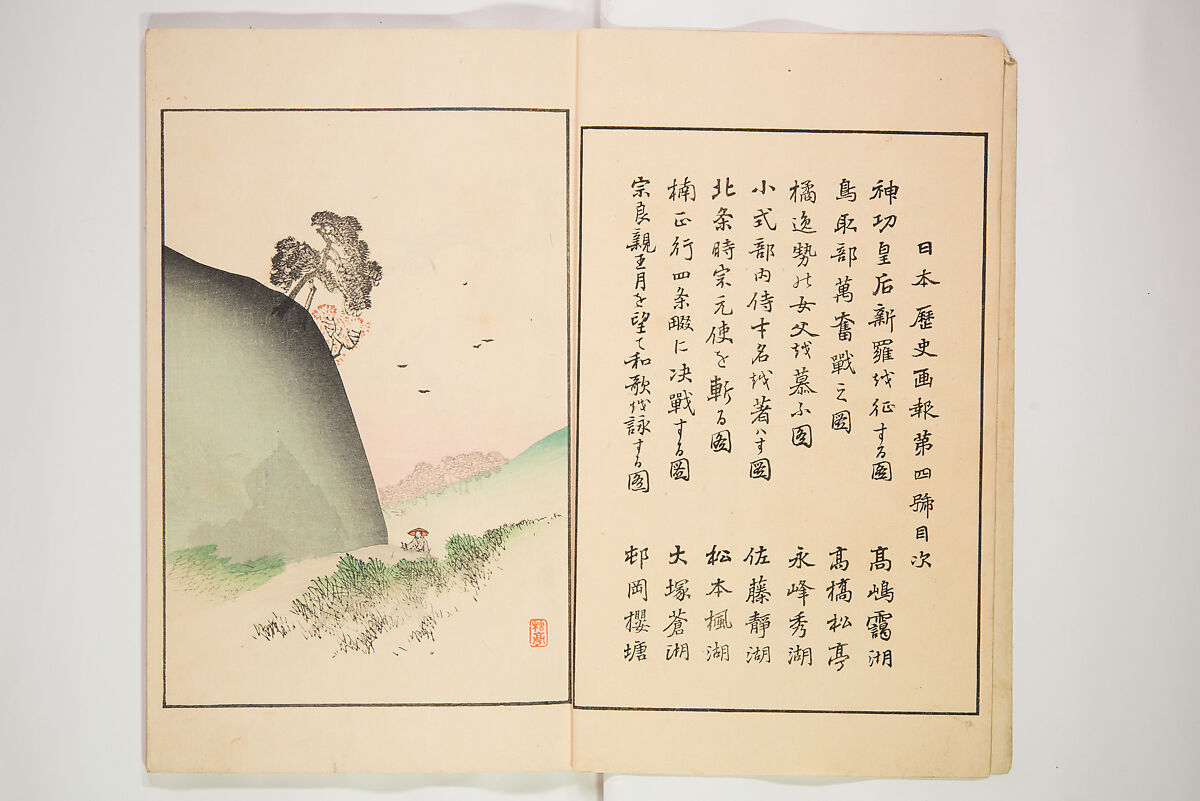 日本歷史画報第四號目次
神功皇后新羅を征する圖 髙嶋靄湖
鳥取部萬奮戰之圖 髙橋松亭
橘逸勢の女父を慕ふ圖 永峰秀湖
小式部内侍才名を著ハす圖 佐藤靜湖
北条時宗元使を斬る圖 松本楓湖
楠正行四条畷に决戰する圖 大塚蒼湖
宗良親王月を望て和歌を詠する圖 邨岡櫻塘
松亭